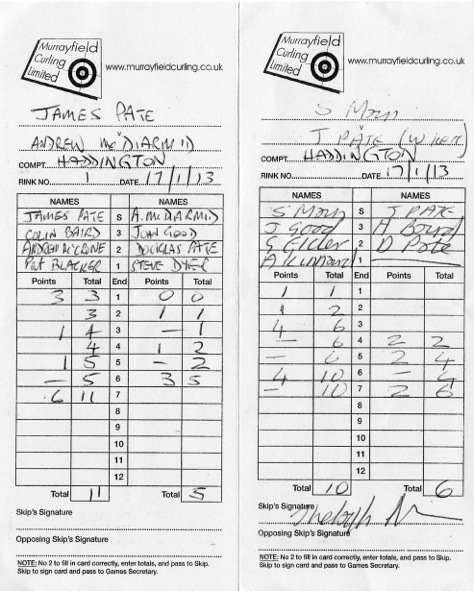 Murrayfield
Curling
Limited
www.murrayfieldcurling.co.uk
JAMES PATE
v
ANDREW McDIARMID
COMPT. HADDINGTON
RINK NO. 1 DATE 17/1/13
NAMES NAMES
JAMES PATE S A. McDIARMID
COLIN BAIRD 3 JOHN GOOD
ANDREW McCRONE 2 DOUGLAS PATE
PAT BLACKER 1 STEVE DYER
Points Total End Points Total
3 3 1 0 0
3 2 1 1
1 4 3 - 1
4 4 1 2
1 5 5 - 2
- 5 6 3 5
6 11 7
8
9
10
11
12
Total 11 Total 5
Skip's Signature
Opposing Skip's Signature
NOTE: No 2 to fill in card correctly, enter totals, and pass to Skip.
Skip to sign card and pass to Games Secretary.
Murrayfield
Curling
Limited
www.murrayfieldcurling.co.uk
S
v
J PATE
COMPT. HADDINGTON
RINK NO. DATE 17/1/13
NAMES NAMES
S S J PATE
J Good 3 A Baird
S Elder 2 D Pate
A 1
Points Total End Points Total
1 1 1
1 2 2
4 6 3
- 6 4 2 2
- 6 5 2 4
4 10 6 - 4
- 10 7 2 6
8
9
10
11
12
Total 10 Total 6
Skip's Signature
Opposing Skip's Signature
NOTE: No 2 to fill in card correctly, enter totals, and pass to Skip.
Skip to sign card and pass to Games Secretary.